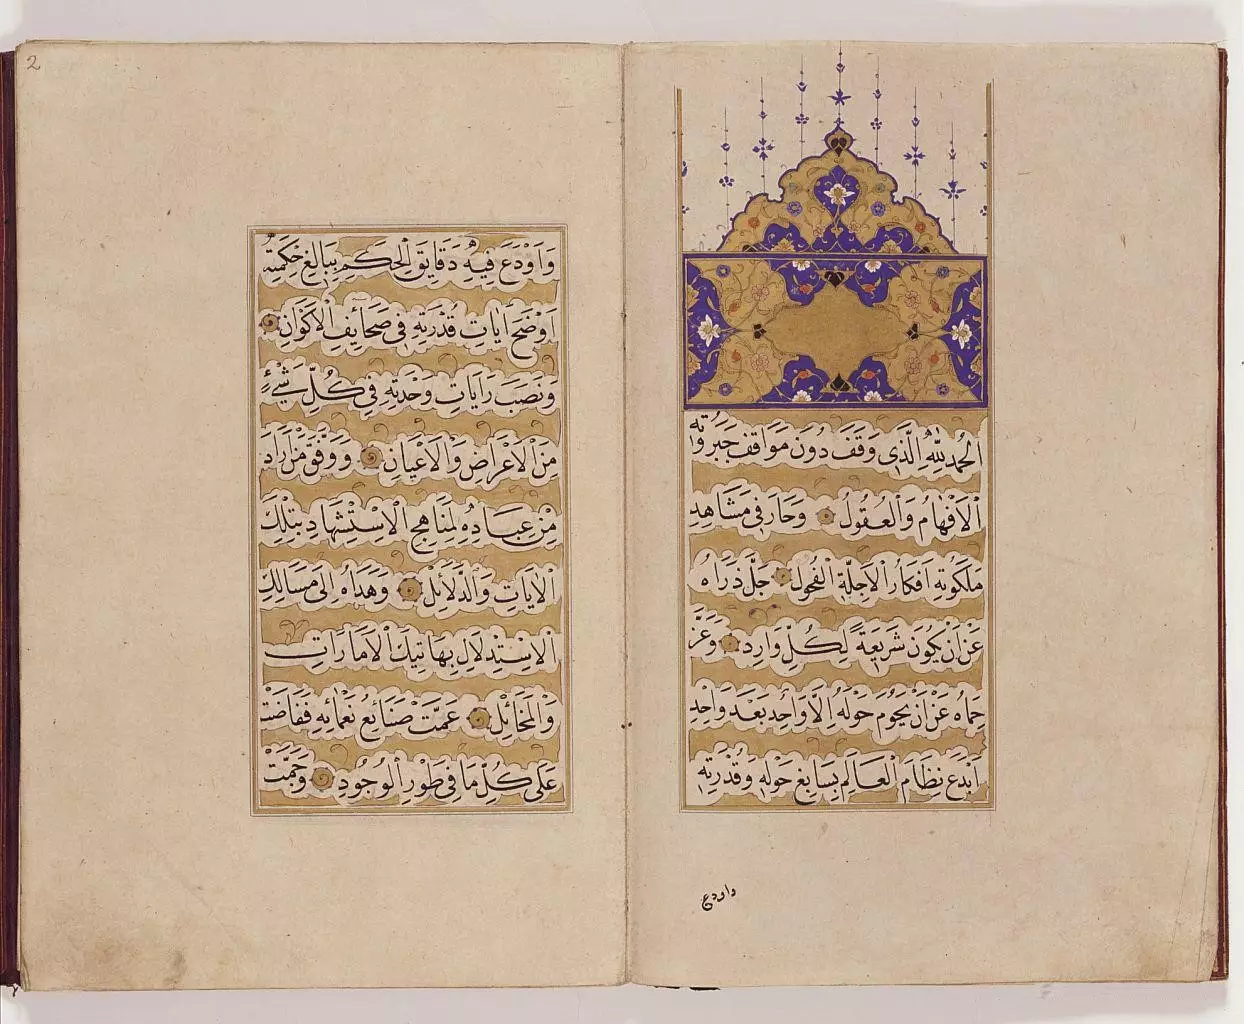 اَلْحَمْدُ لِلّٰهِ الَّذِى وَقَفَ دُونَ مَوَاقِفِ جَبَرُوتِهِ
الْاَفْهَامُ وَالْعُقُولُ وَحَارَ فِى مَشَاهِدِ
مَلَكُوتِهِ اَفْكَارُ الْاَجِلَّةِ الْفُحُولِ جَلَّ ذَرَاهُ
عَنْ اَنْ يَكُونَ شَرِيعَةً لِكُلِّ وَارِدٍ وَعَزَّ
حِمَاهُ عَنْ اَنْ يَحُومَ حَوْلَهُ اِلَّا وَاحِدٌ بَعْدَ وَاحِدٍ
اَبْدَعَ نِظَامَ الْعَالَمِ بِسَابِغِ حَوْلِهِ وَقُدْرَتِهِ
واودع
2
وَاَوْدَعَ فِيهِ دَقَايِقَ الْحِكَمِ بِبَالِغِ حِكْمَتِهِ
اَوْضَحَ اٰيَاتِ قُدْرَتِهِ فِى صَحَائِفِ الْاَكْوَانِ
وَنَصَبَ رَايَاتِ وَحْدَتِهِ فِى كُلِّ شَيْءٍ
مِنَ الْاَعْرَاضِ وَالْاَعْيَانِ وَوَفَّقَ مَنْ اَرَادَ
مِنْ عِبَادِهِ لِمَنَاهِجِ الْاِسْتِشْهَادِ بِتِلْكَ
الْاٰيَاتِ وَالدَّلَائِلِ وَهَدَاهُ اِلَى مَسَالِكِ
الْاِسْتِدْلَالِ بِهَاتِيكَ الْاَمَارَاتِ
وَالْمَخَائِلِ عَمَّتْ صَنَائِعُ نَعْمَائِهِ فَفَاضَتْ
عَلَى كُلِّ مَا فِى طَوْرِ الْوُجُودِ وَجَمَّتْ